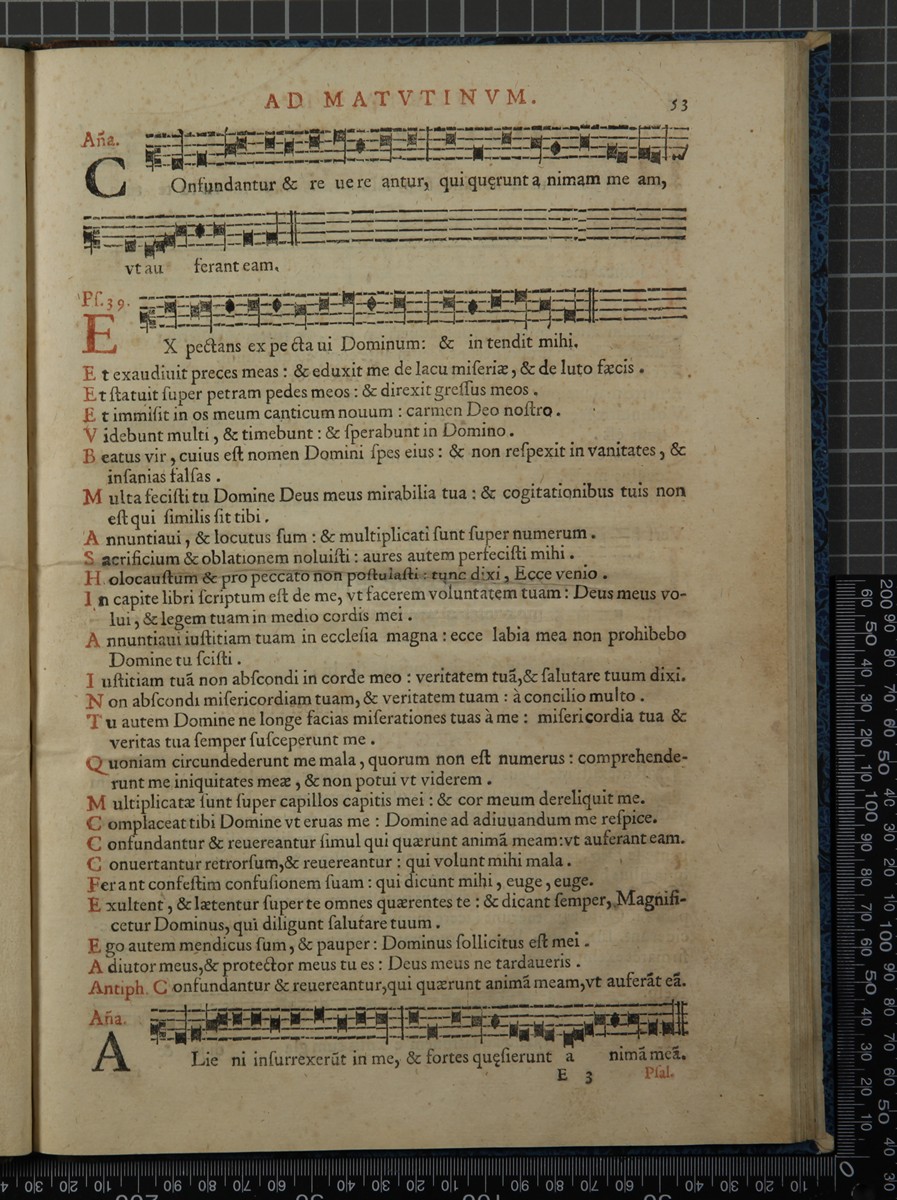 AD MATVTINVM.
53
Aña.
COnfundantur & re uere antur, qui quęrunt a nimam me am,
vt au ferant eam.
Pſ. 39.
EX pectans ex pe cta ui Dominum: & in tendit mihi.
E t exaudiuit preces meas : & eduxit me de lacu miſeriæ, & de luto fæcis .
E t ſtatuit ſuper petram pedes meos : & direxit greſſus meos .
E t immiſit in os meum canticum nouum : carmen Deo noſtro .
V idebunt multi , & timebunt : & ſperabunt in Domino .
B eatus vir , cuius eſt nomen Domini ſpes eius : & non reſpexit in vanitates , &
inſanias falſas .
M ulta feciſti tu Domine Deus meus mirabilia tua : & cogitationibus tuis non
eſt qui ſimilis ſit tibi .
A nnuntiaui , & locutus ſum : & multiplicati ſunt ſuper numerum .
S acrificium & oblationem noluiſti : aures autem perfeciſti mihi .
H olocauſtum & pro peccato non poſtulaſti : tunc dixi , Ecce venio .
I n capite libri ſcriptum eſt de me, vt facerem voluntatem tuam : Deus meus vo-
lui , & legem tuam in medio cordis mei .
A nnuntiaui iuſtitiam tuam in eccleſia magna : ecce labia mea non prohibebo
Domine tu ſciſti .
I uſtitiam tuã non abſcondi in corde meo : veritatem tuã,& ſalutare tuum dixi.
N on abſcondi miſericordiam tuam, & veritatem tuam : à concilio multo .
T u autem Domine ne longe facias miſerationes tuas à me : miſericordia tua &
veritas tua ſemper ſuſceperunt me .
Q uoniam circundederunt me mala , quorum non eſt numerus : comprehende-
runt me iniquitates meæ , & non potui vt viderem .
M ultiplicatæ ſunt ſuper capillos capitis mei : & cor meum dereliquit me.
C omplaceat tibi Domine vt eruas me : Domine ad adiuuandum me reſpice.
C onfundantur & reuereantur ſimul qui quærunt animã meam:vt auferant eam.
C onuertantur retrorſum,& reuereantur : qui volunt mihi mala .
F erant confeſtim confuſionem ſuam : qui dicunt mihi , euge , euge.
E xultent , & lætentur ſuper te omnes quærentes te : & dicant ſemper, Magnifi-
cetur Dominus, qui diligunt ſalutare tuum .
E go autem mendicus ſum , & pauper : Dominus ſollicitus eſt mei .
A diutor meus,& protector meus tu es : Deus meus ne tardaueris .
Antiph. C onfundantur & reuereantur,qui quærunt animã meam,vt auferãt eã.
Aña.
ALie ni inſurrexerũt in me, & fortes quęſierunt a nimã meã.
E 3
Pſal.